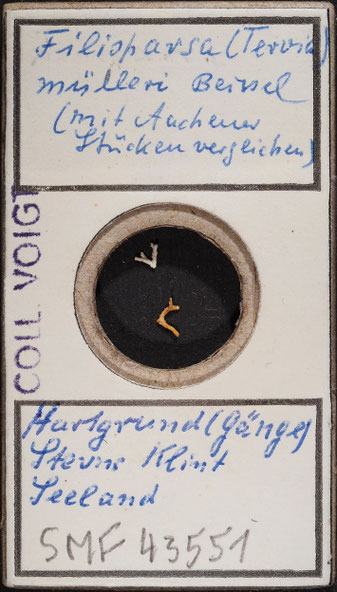 Filisparsa (Tervia)
mülleri Beissel
(mit Aachener
Stücken vergleichen)
COLL. VOIGT
Hartgrund (Gänge)
Stevns Klint
Seeland
SMF 43551